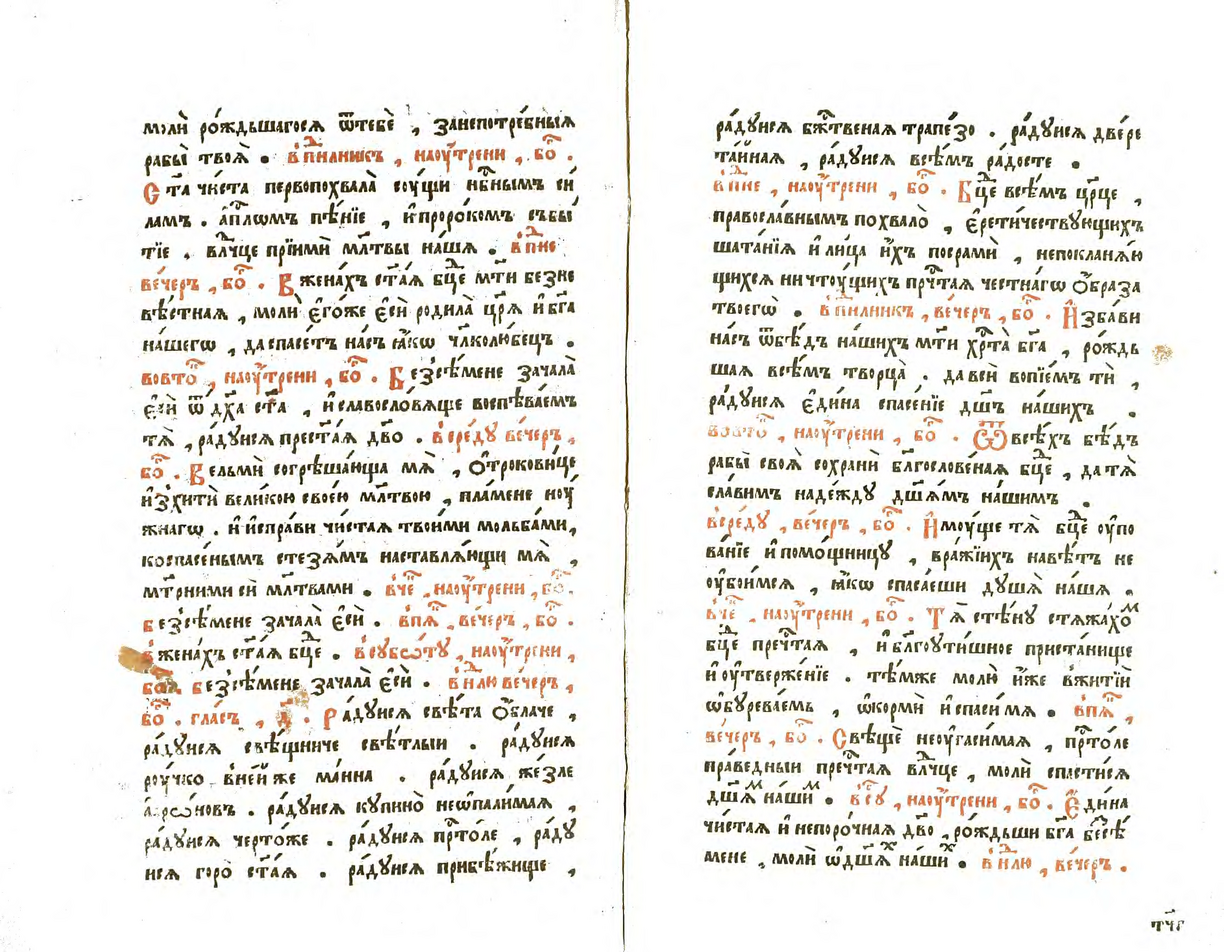 моли̑ ро́ждьшагося ѿтебѐ , занепотре́бныѧ
рабы̀ твоѧ̀ . в̾пн҃лникъ , наоу́трени , бо҃ .
Ст҃а чи́ста первопохвала̀ соу́щи нб҃нымъ си́
ламъ . ап҃лѡмъ пѣ́нїе , и҆проро́комъ събы́
тїе , влⷣчце прїимѝ мл҃твы на́шѧ . в̾пⷩ҇е
ве́черъ , бо҃ . В̾жена́хъ ст҃аѧ бц҃е мт҃и безне
вѣ́стнаѧ , молѝ є҆го́же є҆сѝ родила̀ цр҃ѧ и҆ бг҃а
на́шегѡ , даспасе́тъ на́съ ꙗ҆́кѡ чл҃колю́бецъ .
вовто҃ , наоу́трени , бо҃ . Безсѣ́мене зачала̀
є҆сѝ ѿ дх҃а ст҃а , и҆ славосло́вѧще воспѣва́емъ
тѧ̀ , ра́дуисѧ прест҃а́ѧ дв҃о . в̾сре́ду ве́черъ ,
бо҃ . Вельмѝ согрѣша́юща мѧ̀ , ѻ҆трокови́це
и҆зхитѝ вели́кою свое́ю мл҃твою , пла́мене ноу́
жнагѡ . и҆ и҆спра́ви чи́стаѧ твои́ми мольба́ми ,
коспасе́нымъ стезѧ́мъ наставлѧ́ющи мѧ̀ ,
мт҃рними сѝ мл҃твами . в̾че҃ , наоу́трени , бо҃ .
безсѣ́мене зачала̀ є҆сѝ . в̾пѧ҃ , ве́черъ , бо҃ .
в̾жена́хъ ст҃аѧ бц҃е . в̾субѡ́ту , наоу́трени ,
бо҃ . безсѣ́мене зачала̀ є҆сѝ . в̾нⷣлю ве́черъ ,
бо҃ . гла́съ , д҃ . Ра́дуисѧ свѣ́та ѻ҆́блаче ,
ра́дуисѧ свѣ́щниче свѣ́тлыи . ра́дуисѧ
роу́чко в̾не́й же ма́нна . ра́дуисѧ же́зле
а҆арѡ́новъ . ра́дуисѧ купино̀ неѡпали́маѧ ,
ра́дуисѧ черто́же . ра́дуисѧ прⷭ҇то́ле , ра́ду
исѧ горо̀ ст҃аѧ . ра́дуисѧ прибѣ́жище ,
ра́дуисѧ бжⷭ҇твенаѧ трапе́зо . ра́дуисѧ две́ре
та́йнаѧ , ра́дуисѧ всѣ́мъ ра́досте .
в̾пⷩ҇е , наоу́трени , бо҃ . Бц҃е всѣ́мъ цр҃це ,
правосла́внымъ похвало̀ , є҆рети́чествующихъ
шата́нїѧ и҆ лица̀ и҆́хъ посрамѝ , непоклонѧ́ю
щихсѧ ничтоу́щихъ прⷱ҇таѧ честна́гѡ ѻ҆́браза
твоегѡ̀ . в̾пн҃лникъ , ве́черъ , бо҃ . И҆зба́ви
на́съ ѿбѣ́дъ на́шихъ мт҃и хрⷭ҇та̀ бг҃а , ро́ждь
шаѧ всѣ́мъ творца̀ . да всѝ вопїе́мъ ти̑ ,
ра́дуисѧ є҆ди́на спасе́нїе дш҃ъ на́шихъ .
вовто҃ , наоу́трени , бо҃ . Ѿ всѣ́хъ бѣ́дъ
рабы̀ своѧ̀ сохранѝ бл҃гослове́наѧ бц҃е , да тѧ̀
сла́вимъ наде́жду дш҃а́мъ на́шимъ .
в̾сре́ду , ве́черъ , бо҃ . И҆моуще тѧ̀ бц҃е оу҆по
ва́нїе и҆ помо́щницу , вра́жїихъ навѣ́тъ не
оу҆бои́мсѧ , ꙗ҆́кѡ спаса́еши ду́шѧ на́шѧ .
в̾че҃ , наоу́трени , бо҃ . Тѧ̀ стѣ́ну стѧжа́хоⷨ
бц҃е пречⷭ҇таѧ , и҆ бл҃гоути́шное приста́нище
и҆ оу҆твержде́нїе . тѣ́мже молю̀ и҆́же в̾житїѝ
ѡ҆бурева́емь , ѡ҆кормѝ и҆ спаси́ мѧ . в̾пѧ҃ ,
ве́черъ , бо҃ . Свѣщѐ неоугаси́маѧ , прⷭ҇то́ле
пра́ведныи пречⷭ҇таѧ влⷣчце , молѝ спасти́сѧ
дш҃аⷨ на́шиⷨ . в̾су҃ , наоу́трени , бо҃ . Є҆ди́на
чи́стаѧ и҆ непоро́чнаѧ дв҃о , ро́ждьши бг҃а бесѣ́
мене , молѝ ѡ҆ дш҃аⷯ на́шиⷯ . в̾нⷣлю , ве́черъ .
тч҃г